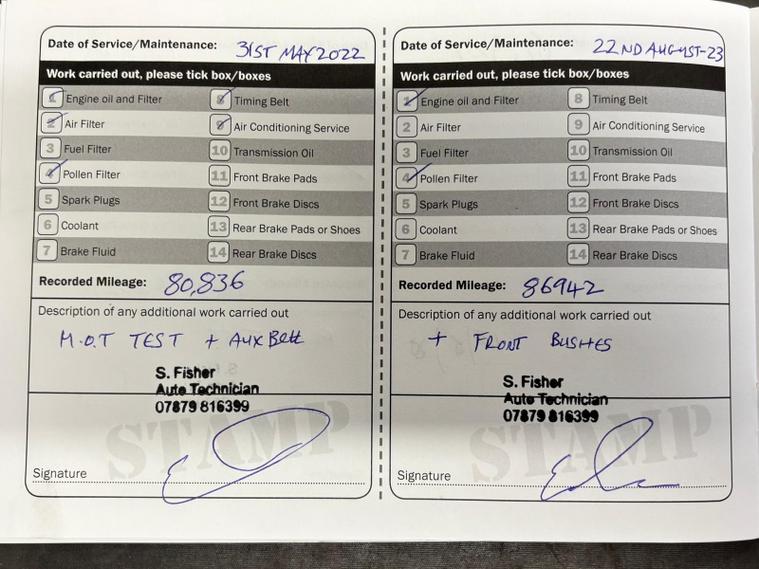 Date of Service/Maintenance: 31ST MAY 2022
Work carried out, please tick box/boxes
1 Engine oil and Filter 8 Timing Belt
2 Air Filter 9 Air Conditioning Service
3 Fuel Filter 10 Transmission Oil
4 Pollen Filter 11 Front Brake Pads
5 Spark Plugs 12 Front Brake Discs
6 Coolant 13 Rear Brake Pads or Shoes
7 Brake Fluid 14 Rear Brake Discs
Recorded Mileage: 80,836
Description of any additional work carried out
M.O.T TEST + Aux Belt
S. Fisher
Auto Technician
07879 816399
STAMP
Signature
Date of Service/Maintenance: 22ND AUGUST-23
Work carried out, please tick box/boxes
1 Engine oil and Filter 8 Timing Belt
2 Air Filter 9 Air Conditioning Service
3 Fuel Filter 10 Transmission Oil
4 Pollen Filter 11 Front Brake Pads
5 Spark Plugs 12 Front Brake Discs
6 Coolant 13 Rear Brake Pads or Shoes
7 Brake Fluid 14 Rear Brake Discs
Recorded Mileage: 86942
Description of any additional work carried out
+ FRONT BUSHES
S. Fisher
Auto Technician
07879 816399
STAMP
Signature